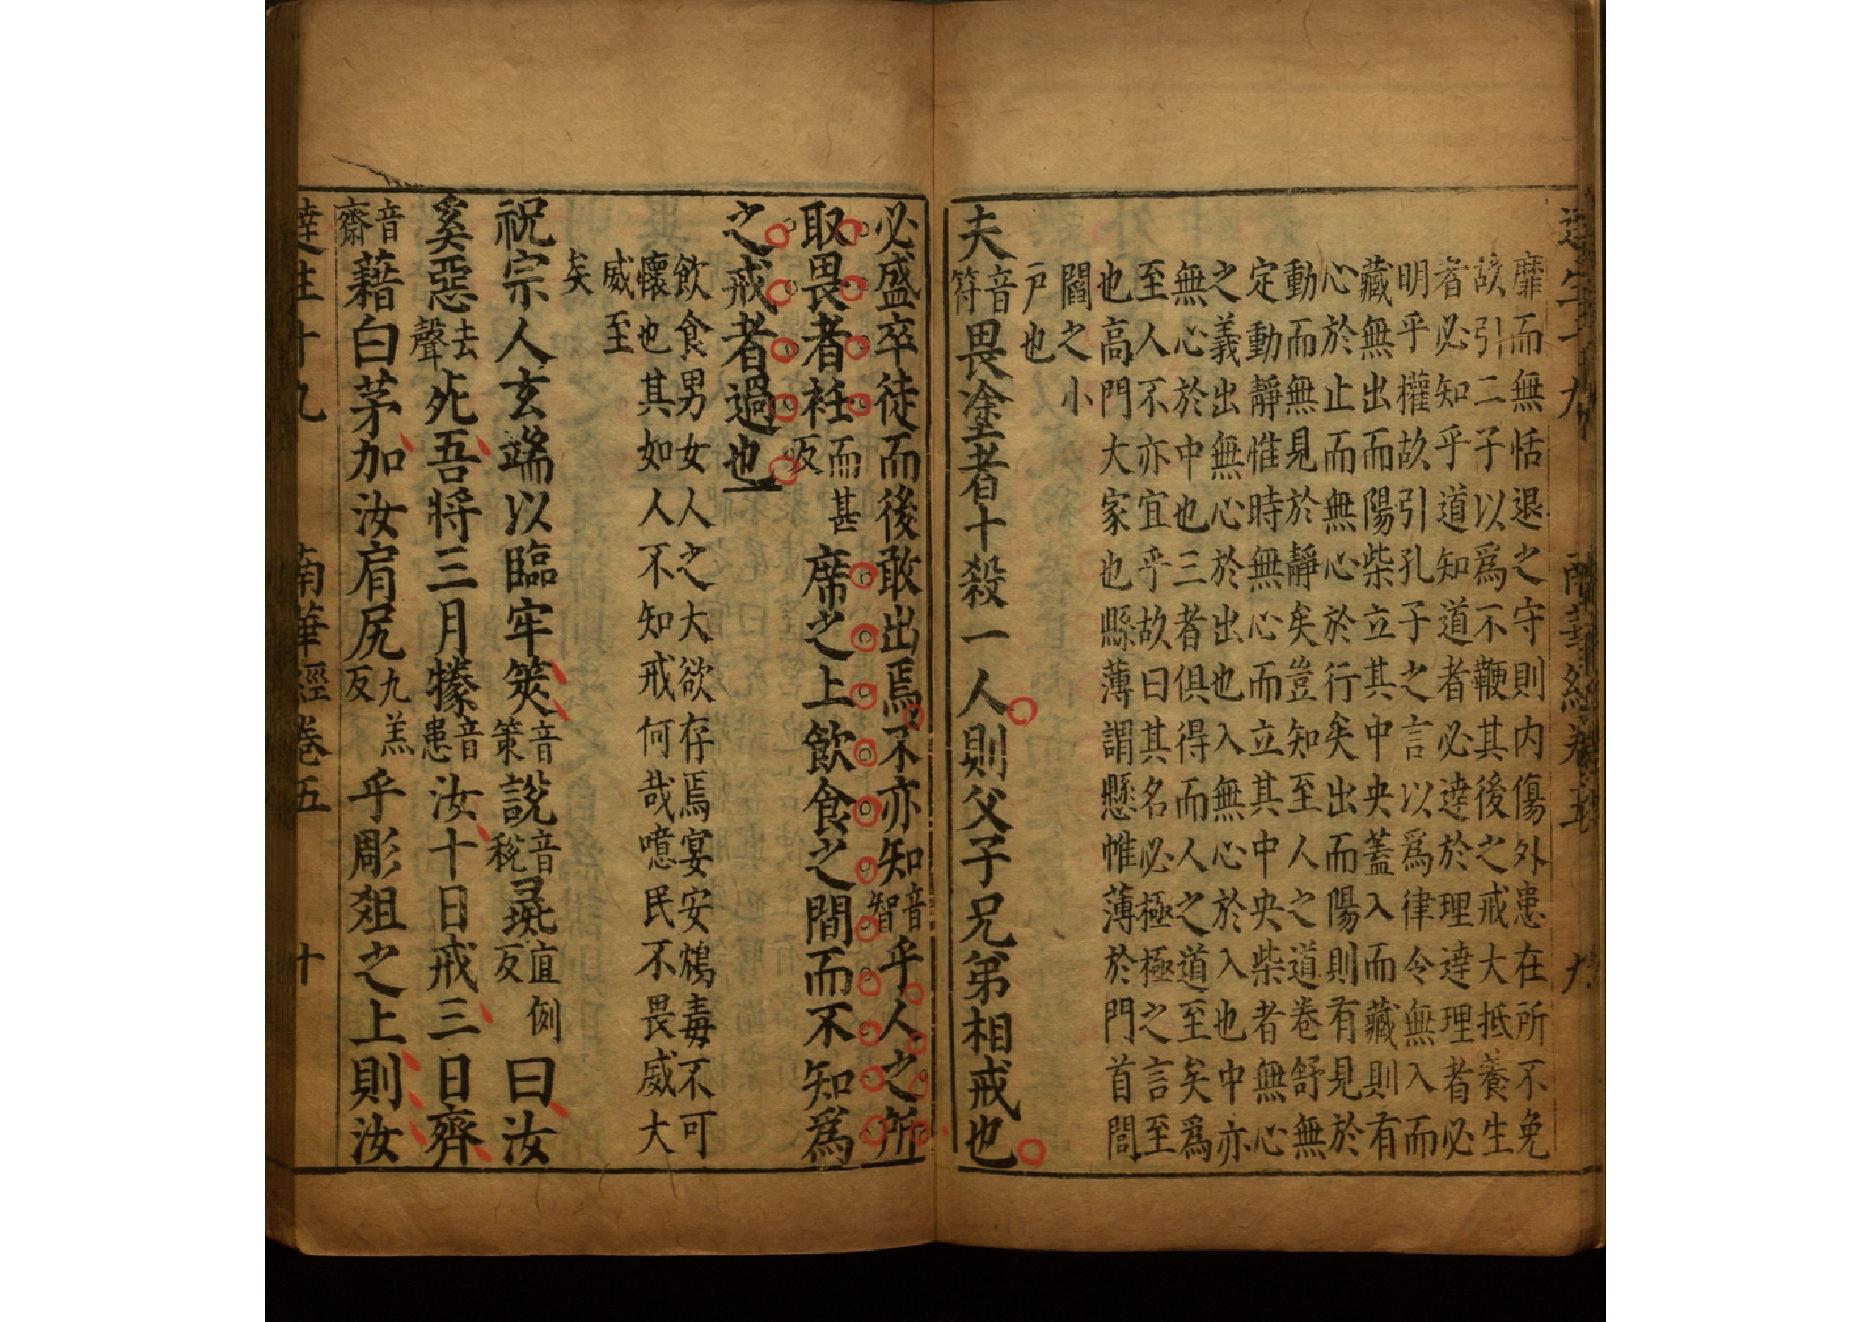 達生十九 南華經卷五 九
靡而無恬退之守則内傷外患在所不免
故引二子以爲不鞭其後之戒大抵養生
者必知乎道知道者必達於理達理者必
明乎權故引孔子之言以爲律令無入而
藏無出而陽柴立其中央蓋入而藏則有
心於止而無心於行矣出而陽則有見於
動而無見於靜矣豈知至人之道卷舒無
定動靜惟時無心而立其中央柴者無心
之義出無心於出也入無心於入也中亦
無心於中也三者俱得而人之道至矣爲
至人不亦宜乎故曰其名必極極之言至
也高門大家也縣薄謂懸帷薄於門首閭
閻之小
戸也
夫音符畏塗者十殺一人則父子兄弟相戒也
必盛卒徒而後敢出焉不亦知音智乎人之所
取畏者衽而甚反席之上飲食之間而不知爲
之戒者過也
飲食男女人之大欲存焉宴安鴆毒不可
懷也其如人不知戒何哉噫民不畏威大
威至
矣
祝宗人玄端以臨牢筴音策說音稅彘直例反曰汝
奚惡去聲死吾將三月㹖音患汝十日戒三日齊
音齋藉白茅加汝肩尻九羔反乎彫俎之上則汝
達生十九 南華經卷五 十